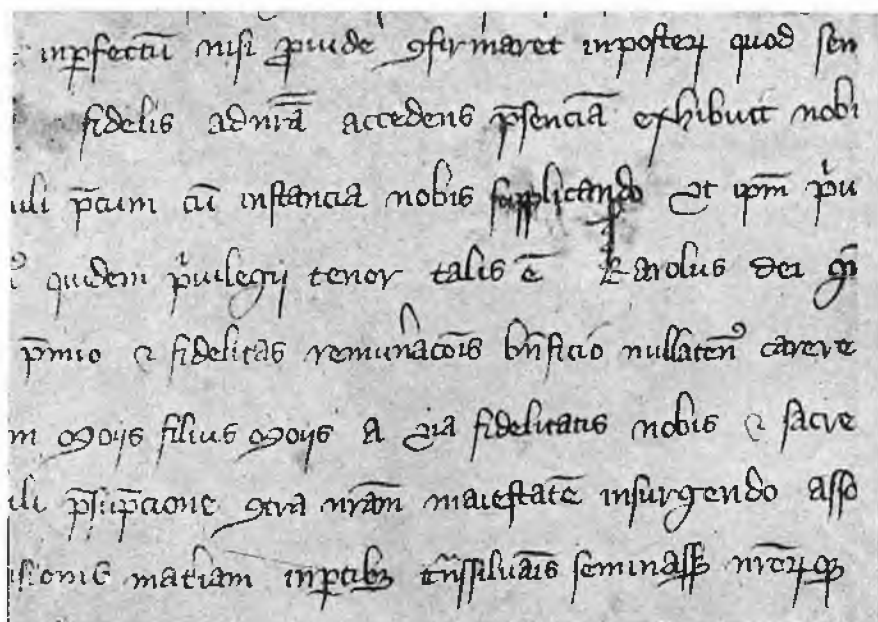 inꝑfectū nisi ꝓuide ꝯfirmaret inposteꝝ quod sen
fidelis ad nr̄ā accedens p̄senciā exhibuit nobi
uli p̄cum cū instancia nobis supplicando Et ipm̄ pͥu
quidem pͥuilegij tenor talis ē Karolus dei gr̄
p̄mio ⁊ fidelitas remun̄acōis bn̄ficio nullatenꝰ carere
m Moijs filius Moijs a uia fidelitatis nobis ⁊ sacre
ili p̄sūpcione ꝯtra nr̄am maiestatē insurgendo asso
isionis mat̄iam inꝑtibꝫ tn̄ssiluāis seminassꝫ nr̄oꝝqꝫ